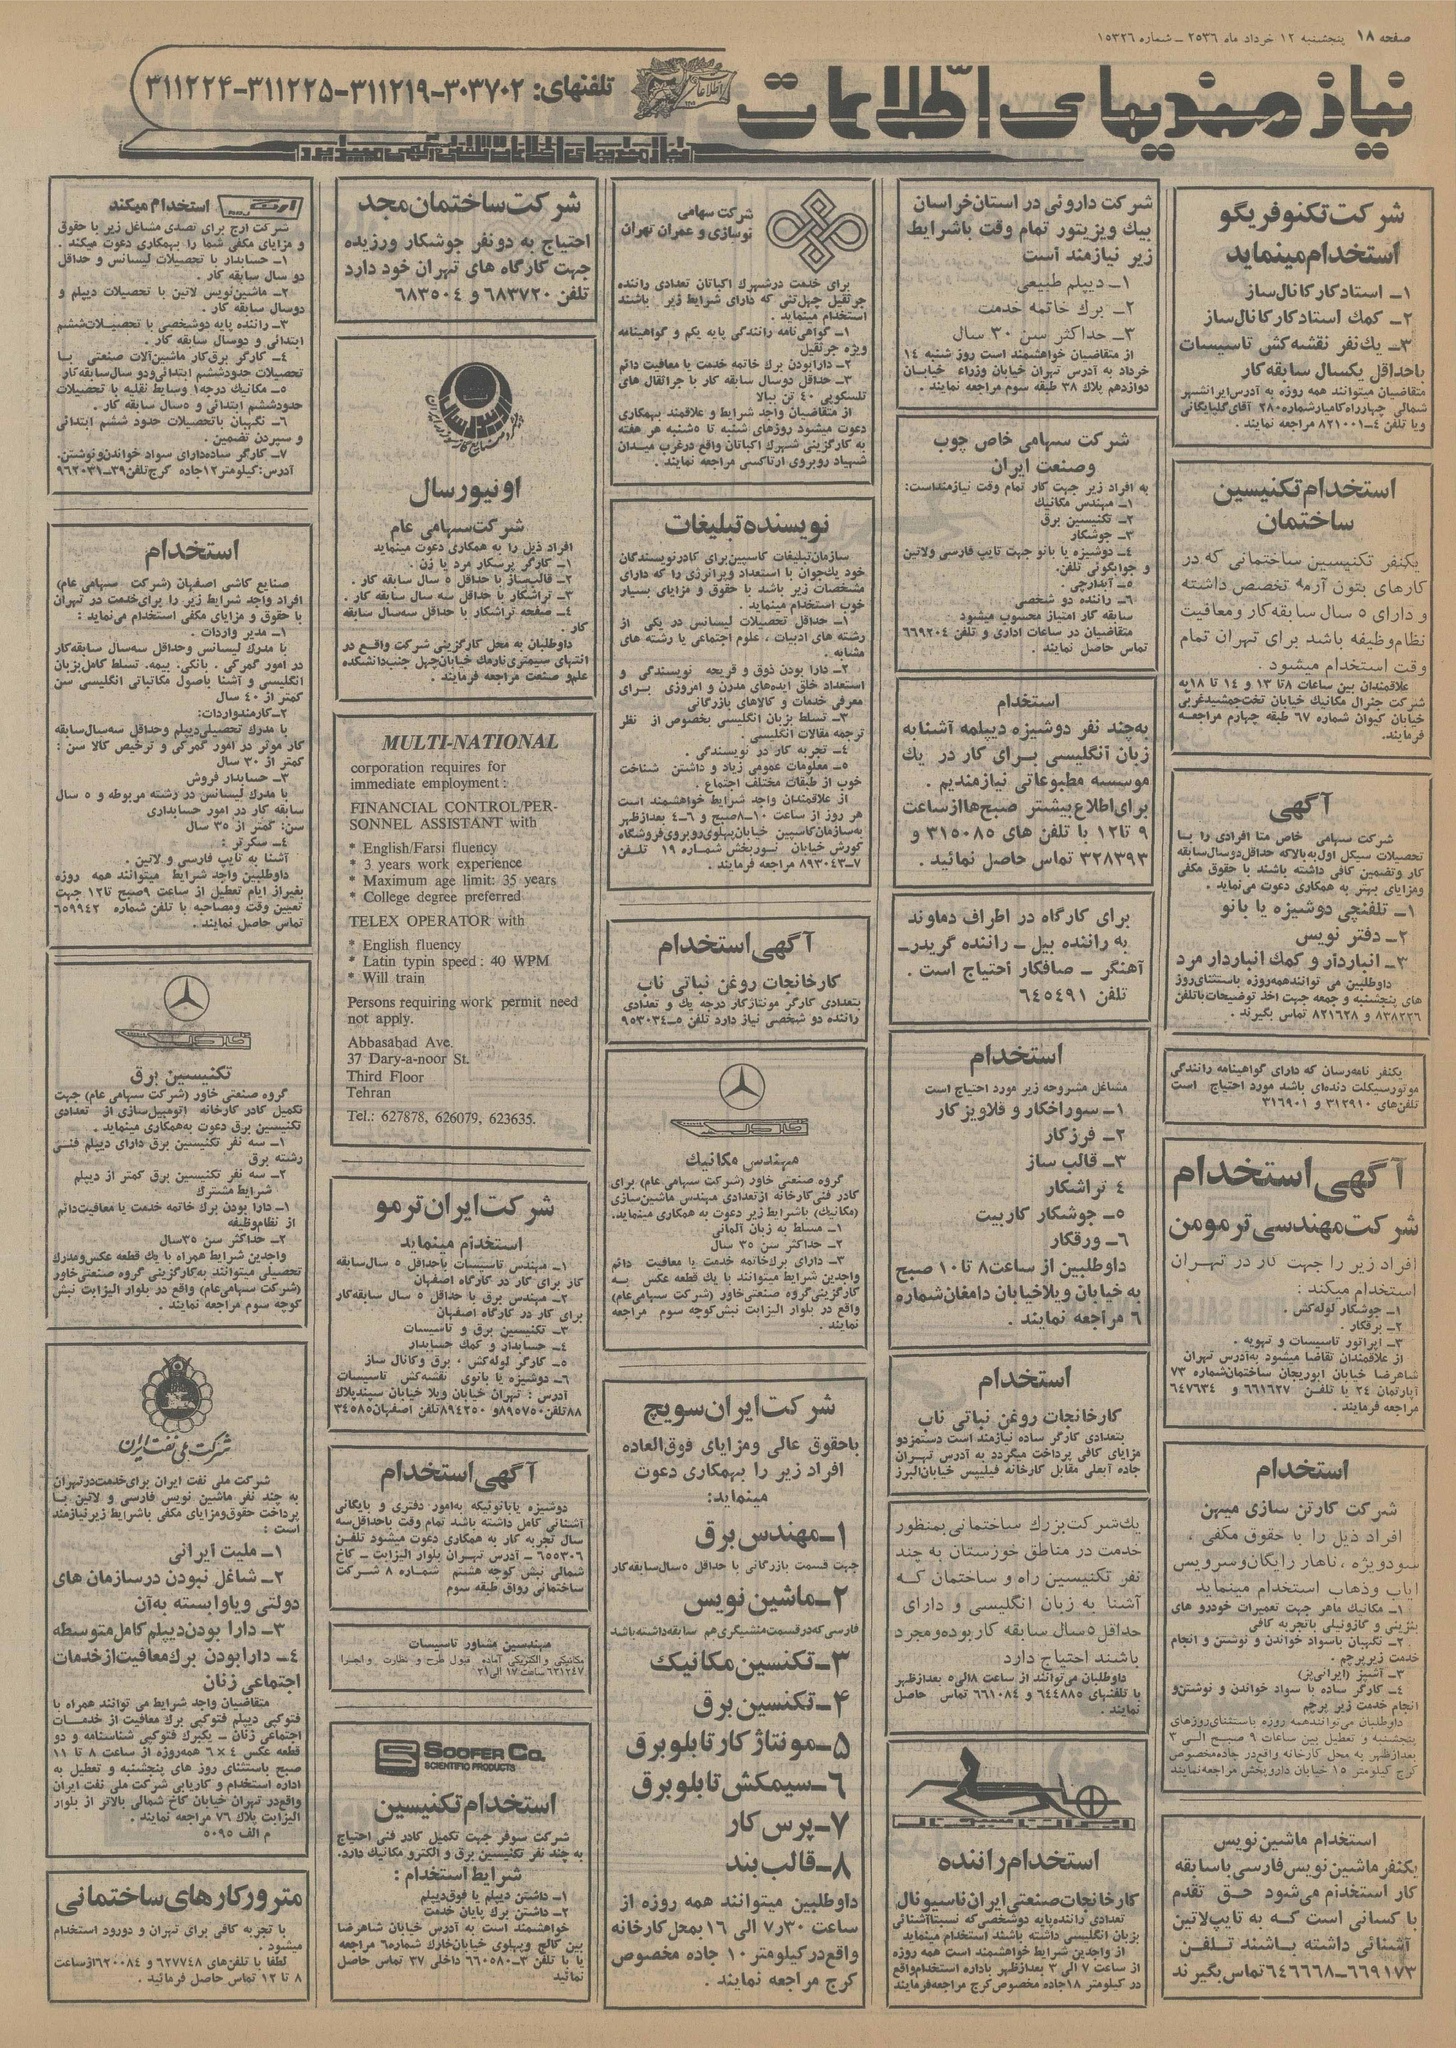 صفحه ۱۸ پنجشنبه ۱۲ خرداد ماه ۲۵۳۶ ــ شماره ۱۵۳۲۶
نیازمندیهای اطلاعات
تلفنهای: ۳۰۳۷۰۲-۳۱۱۲۱۹-۳۱۱۲۲۵-۳۱۱۲۲۴
نیازمندیهای اطلاعات تلفنی آگهی میپذیرد
شرکت تکنوفریگو
استخدام مینماید
۱ــ استادکار کانال‌ساز
۲ــ کمک استادکار کانال‌ساز
۳ــ یک نفر نقشه‌کش تاسیسات
باحداقل یکسال سابقه کار
متقاضیان میتوانند همه روزه به آدرس ایرانشهر
شمالی چهارراه کامیار شماره ۲۸۰ آقای گلپایگانی
ویا تلفن ۴ــ۸۲۱۰۰۱ مراجعه نمایند .
استخدام تکنیسین
ساختمان
یکنفر تکنیسین ساختمانی که در
کارهای بتون آرمه تخصص داشته
و دارای ۵ سال سابقه کار و معافیت
نظام وظیفه باشد برای تهران تمام
وقت استخدام میشود .
علاقمندان بین ساعات ۸ تا ۱۳ و ۱۴ تا ۱۸ به
شرکت جنرال مکانیک خیابان تخت جمشید غربی
خیابان کیوان شماره ۶۷ طبقه چهارم مراجعه
فرمایند.
آگهی
شرکت سهامی خاص متا افرادی را با
تحصیلات سیکل اول به بالا که حداقل دوسال سابقه
کار وتضمین کافی داشته باشند با حقوق مکفی
ومزایای بهتر به همکاری دعوت می‌نماید .
۱ــ تلفنچی دوشیزه یا بانو
۲ــ دفتر نویس
۳ــ انباردار و کمک انباردار مرد
داوطلبین می توانند همه‌روزه باستثنای روز
های پنجشنبه و جمعه جهت اخذ توضیحات باتلفن
۸۳۸۲۲۶ و ۸۲۱۶۲۸ تماس بگیرند .
یکنفر نامه‌رسان که دارای گواهینامه رانندگی
موتورسیکلت دنده‌ای باشد مورد احتیاج است
تلفن‌های ۳۱۲۹۱۰ و ۳۱۶۹۰۱
آگهی استخدام
شرکت مهندسی ترمومن
افراد زیر را جهت کار در تهران
استخدام میکند :
۱ــ جوشکار لوله‌کش .
۲ــ برقکار .
۳ــ اپراتور تاسیسات و تهویه .
از علاقمندان تقاضا میشود به‌آدرس تهران
شاهرضا خیابان ابوریحان ساختمان شماره ۷۳
آپارتمان ۲۴ یا تلفن ۶۶۱۶۲۷ و ۶۴۷۶۳۴
مراجعه فرمایند .
استخدام
شرکت کارتن سازی میهن
افراد ذیل را با حقوق مکفی ،
سودویژه ، ناهار رایگان و سرویس
ایاب وذهاب استخدام مینماید
۱ــ مکانیک ماهر جهت تعمیرات خودرو های
بنزینی و گازوئیلی باتجربه کافی
۲ــ نگهبان باسواد خواندن و نوشتن و انجام
خدمت زیرپرچم .
۳ــ آشپز (ایرانی‌پز)
۴ــ کارگر ساده با سواد خواندن و نوشتن و
انجام خدمت زیر پرچم
داوطلبان می‌توانند همه روزه باستثنای روزهای
پنجشنبه و تعطیل بین ساعات ۹ صبح الی ۳
بعدازظهر به محل کارخانه واقع در جاده مخصوص
کرج کیلومتر ۱۵ خیابان داروپخش مراجعه نمایند
استخدام ماشین نویس
یکنفر ماشین نویس فارسی با سابقه
کار استخدام می‌شود حق تقدم
با کسانی است که به تایپ لاتین
آشنائی داشته باشند تلفن
۶۶۹۱۷۳ــ۶۴۶۶۶۸ تماس بگیرند
شرکت داروئی در استان خراسان
بیک ویزیتور تمام وقت باشرایط
زیر نیازمند است
۱ــ دیپلم طبیعی
۲ــ برک خاتمه خدمت
۳ــ حداکثر سن ۳۰ سال
از متقاضیان خواهشمند است روز شنبه ۱۴
خرداد به آدرس تهران خیابان وزراء خیابان
دوازدهم پلاک ۳۸ طبقه سوم مراجعه نمایند .
شرکت سهامی خاص چوب
وصنعت ایران
به افراد زیر جهت کار تمام وقت نیازمنداست:
۱ــ مهندس مکانیک
۲ــ تکنیسین برق
۳ــ جوشکار
۴ــ دوشیزه یا بانو جهت تایپ فارسی ولاتین
و جوابگوئی تلفن.
۵ــ آبدارچی
۶ــ راننده دو شخصی
سابقه کار امتیاز محسوب میشود
متقاضیان در ساعات اداری و تلفن ۶۶۹۲۰۴
تماس حاصل نمایند .
استخدام
به‌چند نفر دوشیزه دیپلمه آشنا به
زبان انگلیسی برای کار در یک
موسسه مطبوعاتی نیازمندیم .
برای اطلاع بیشتر صبح‌ها از ساعت
۹ تا ۱۲ با تلفن های ۳۱۵۰۸۵ و
۳۲۸۳۹۳ تماس حاصل نمائید .
برای کارگاه در اطراف دماوند
به راننده بیل ــ راننده گریدر ــ
آهنگر ــ صافکار احتیاج است .
تلفن ۶۴۵۴۹۱
استخدام
مشاغل مشروحه زیر مورد احتیاج است
۱ــ سوراخکار و قلاویزکار
۲ــ فرزکار
۳ــ قالب ساز
۴ تراشکار
۵ــ جوشکار کاربیت
۶ــ ورقکار
داوطلبین از ساعت ۸ تا ۱۰ صبح
به خیابان ویلا خیابان دامغان شماره
۶ مراجعه نمایند .
استخدام
کارخانجات روغن نباتی ناب
بتعدادی کارگر ساده نیازمند است دستمزدو
مزایای کافی پرداخت میگردد به آدرس تهران
جاده آبعلی مقابل کارخانه فیلیپس خیابان البرز
یک شرکت بزرک ساختمانی بمنظور
خدمت در مناطق خوزستان به چند
نفر تکنیسین راه و ساختمان که
آشنا به زبان انگلیسی و دارای
حداقل ۵ سال سابقه کار بوده و مجرد
باشند احتیاج دارد
داوطلبان می‌توانند از ساعت ۸ الی ۵ بعدازظهر
با تلفنهای ۶۴۴۸۸۵ و ۶۶۱۰۸۴ تماس حاصل
نمایند .
ایران ناسیونال
استخدام راننده
کارخانجات صنعتی ایران ناسیونال
تعدادی راننده پایه دوشخصی که نسبتا آشنائی
بزبان انگلیسی داشته باشند استخدام مینماید
از واجدین شرایط خواهشمند است همه روزه
از ساعت ۷ الی ۳ بعدازظهر باداره استخدام واقع
در کیلومتر ۱۸ جاده مخصوص کرج مراجعه فرمایند
شرکت سهامی
نوسازی و عمران تهران
برای خدمت در شهرک اکباتان تعدادی راننده
جرثقیل چهل‌تنی که دارای شرایط زیر باشند
استخدام مینماید .
۱ــ گواهی نامه رانندگی پایه یکم و گواهینامه
ویژه جرثقیل
۲ــ دارابودن برک خاتمه خدمت یا معافیت دائم
۳ــ حداقل دوسال سابقه کار با جراثقال های
تلسکوپی ۴۰ تن ببالا
از متقاضیان واجد شرایط و علاقمند بهمکاری
دعوت میشود روزهای شنبه تا ۵شنبه هر هفته
به کارگزینی شهرک اکباتان واقع درغرب میدان
شهیاد روبروی ارتاکسی مراجعه نمایند .
نویسنده تبلیغات
سازمان‌تبلیغات کاسپین برای کادر نویسندگان
خود یک‌جوان با استعداد وپرانرژی را که دارای
مشخصات زیر باشد با حقوق و مزایای بسیار
خوب استخدام مینماید .
۱ــ حداقل تحصیلات لیسانس در یکی از
رشته های ادبیات ، علوم اجتماعی یا رشته های
مشابه .
۲ــ دارا بودن ذوق و قریحه نویسندگی و
استعداد خلق ایده‌های مدرن و امروزی برای
معرفی خدمات و کالاهای بازرگانی
۳ــ تسلط بزبان انگلیسی بخصوص از نظر
ترجمه مقالات انگلیسی .
۴ــ تجربه کار در نویسندگی .
۵ــ معلومات عمومی زیاد و داشتن شناخت
خوب از طبقات مختلف اجتماع .
از علاقمندان واجد شرایط خواهشمند است
هر روز از ساعت ۱۰ــ۸ صبح و ۶ــ۴ بعدازظهر
به‌سازمان کاسپین خیابان پهلوی روبروی فروشگاه
کورش خیابان نوربخش شماره ۱۹ تلفن
۷ــ۸۹۳۰۴۳ مراجعه فرمایند .
آگهی استخدام
کارخانجات روغن نباتی ناب
بتعدادی کارگر مونتاژکار درجه یک و تعدادی
راننده دو شخصی نیاز دارد تلفن ۵ــ۹۵۳۰۳۴
خاور
مهندس مکانیک
گروه صنعتی خاور (شرکت سهامی عام) برای
کادر فنی کارخانه از تعدادی مهندس ماشین‌سازی
(مکانیک) باشرایط زیر دعوت به همکاری مینماید.
۱ــ مسلط به زبان آلمانی
۲ــ حداکثر سن ۳۵ سال
۳ــ دارای برک خاتمه خدمت یا معافیت دائم
واجدین شرایط میتوانند با یک قطعه عکس به
کارگزینی گروه صنعتی خاور (شرکت سهامی عام)
واقع در بلوار الیزابت نبش کوچه سوم مراجعه
نمایند .
شرکت ایران سویچ
باحقوق عالی ومزایای فوق‌العاده
افراد زیر را بهمکاری دعوت
مینماید:
۱ــ مهندس برق
جهت قسمت بازرگانی با حداقل ۵سال سابقه کار
۲ــ ماشین نویس
فارسی که در قسمت منشیگری هم سابقه داشته باشد
۳ــ تکنسین مکانیک
۴ــ تکنسین برق
۵ــ مونتاژکار تابلو برق
۶ــ سیمکش تابلو برق
۷ــ پرس کار
۸ــ قالب بند
داوطلبین میتوانند همه روزه از
ساعت ۷٫۳۰ الی ۱۶ بمحل کارخانه
واقع در کیلومتر ۱۰ جاده مخصوص
کرج مراجعه نمایند .
شرکت ساختمان مجد
احتیاج به دو نفر جوشکار ورزیده
جهت کارگاه های تهران خود دارد
تلفن ۶۸۳۷۲۰ و ۶۸۳۵۰۴
اونیورسال
شرکت سهامی عام
افراد ذیل را به همکاری دعوت مینماید
۱ــ کارگر پرسکار مرد یا زن .
۲ــ قالب‌ساز با حداقل ۵ سال سابقه کار .
۳ــ تراشکار با حداقل سه سال سابقه کار .
۴ــ صفحه تراشکار با حداقل سه‌سال سابقه
کار .
داوطلبان به محل کارگزینی شرکت واقع در
انتهای سیمتری نارمک خیابان چهل جنب دانشکده
علم و صنعت مراجعه فرمایند .
MULTI-NATIONAL
corporation requires for
immediate employment :
FINANCIAL CONTROL/PER-
SONNEL ASSISTANT with
* English/Farsi fluency
* 3 years work experience
* Maximum age limit: 35 years
* College degree preferred
TELEX OPERATOR with
* English fluency
* Latin typin speed : 40 WPM
* Will train
Persons requiring work permit need
not apply.
Abbasabad Ave.
37 Dary-a-noor St.
Third Floor
Tehran
Tel.: 627878, 626079, 623635.
شرکت ایران ترمو
استخدام مینماید
۱ــ مهندس تاسیسات باحداقل ۵ سال سابقه
کار برای کار در کارگاه اصفهان
۲ــ مهندس برق با حداقل ۵ سال سابقه کار
برای کار در کارگاه اصفهان
۳ــ تکنیسین برق و تاسیسات
۴ــ حسابدار و کمک حسابدار
۵ــ کارگر لوله‌کش ، برق وکانال ساز
۶ــ دوشیزه یا بانوی نقشه‌کش تاسیسات
آدرس : تهران خیابان ویلا خیابان سپند پلاک
۸۸ تلفن ۸۹۵۷۵۰ و ۸۹۴۲۵۰ تلفن اصفهان ۳۴۵۸۵
آگهی استخدام
دوشیزه یابانوئیکه به‌امور دفتری و بایگانی
آشنائی کامل داشته باشد تمام وقت باحداقل سه
سال تجربه کار به همکاری دعوت میشود تلفن
۶۵۵۳۰۶ ــ آدرس تهران بلوار الیزابت ــ کاخ
شمالی نبش کوچه هشتم شماره ۸ شرکت
ساختمانی رواق طبقه سوم
مهندسین مشاور تاسیسات
مکانیکی و الکتریکی آماده قبول طرح و نظارت و اجرا
۶۳۱۲۴۷ ساعت ۱۷ الی ۲۱
SOOFER CO.
SCIENTIFIC PRODUCTS
استخدام تکنیسین
شرکت سوفر جهت تکمیل کادر فنی احتیاج
به چند نفر تکنیسین برق و الکترو مکانیک دارد.
شرایط استخدام :
۱ــ داشتن دیپلم یا فوق‌دیپلم
۲ــ داشتن برک پایان خدمت
خواهشمند است به آدرس خیابان شاهرضا
بین کالج وپهلوی خیابان خارک شماره ۶ مراجعه
یا با تلفن ۳ــ۶۶۰۵۸۰ داخلی ۲۷ تماس حاصل
نمائید
ارج استخدام میکند
شرکت ارج برای تصدی مشاغل زیر با حقوق
و مزایای مکفی شما را بهمکاری دعوت میکند .
۱ــ حسابدار با تحصیلات لیسانس و حداقل
دو سال سابقه کار .
۲ــ ماشین‌نویس لاتین با تحصیلات دیپلم و
دوسال سابقه کار .
۳ــ راننده پایه دوشخصی با تحصیلات‌ششم
ابتدائی و دوسال سابقه کار .
۴ــ کارگر برق‌کار ماشین‌آلات صنعتی با
تحصیلات حدودششم ابتدائی‌ودو سال‌سابقه‌کار
۵ــ مکانیک درجه ۱ وسایط نقلیه با تحصیلات
حدودششم ابتدائی و ۵ سال سابقه کار .
۶ــ نگهبان باتحصیلات حدود ششم ابتدائی
و سپردن تضمین .
۷ــ کارگر ساده‌دارای سواد خواندن‌ونوشتن.
آدرس: کیلومتر ۱۲ جاده کرج تلفن ۳۹ــ۹۶۲۰۳۱
استخدام
صنایع کاشی اصفهان (شرکت سهامی عام)
افراد واجد شرایط زیر را برای خدمت در تهران
با حقوق و مزایای مکفی استخدام می‌نماید :
۱ــ مدیر واردات .
با مدرک لیسانس وحداقل سه‌سال سابقه‌کار
در امور گمرکی . بانکی. بیمه. تسلط کامل بزبان
انگلیسی و آشنا باصول مکاتباتی انگلیسی سن
کمتر از ۴۰ سال
۲ــ کارمندواردات:
با مدرک تحصیلی‌دیپلم وحداقل سه‌سال‌سابقه
کار موثر در امور گمرکی و ترخیص کالا سن :
کمتر از ۳۰ سال
۳ــ حسابدار فروش
با مدرک لیسانس در رشته مربوطه و ۵ سال
سابقه کار در امور حسابداری
سن: کمتر از ۳۵ سال
۴ــ سکرتر :
آشنا به تایپ فارسی و لاتین .
داوطلبین واجد شرایط میتوانند همه روزه
بغیراز ایام تعطیل از ساعت ۹صبح تا ۱۲ جهت
تعیین وقت ومصاحبه با تلفن شماره ۶۵۹۹۴۲
تماس حاصل نمایند .
خاور
تکنیسین برق
گروه صنعتی خاور (شرکت سهامی عام) جهت
تکمیل کادر کارخانه اتومبیل‌سازی از تعدادی
تکنیسین برق دعوت به‌همکاری مینماید .
۱ــ سه نفر تکنیسین برق دارای دیپلم فنی
رشته برق
۲ــ سه نفر تکنیسین برق کمتر از دیپلم
شرایط مشترک
۱ــ دارا بودن برک خاتمه خدمت یا معافیت‌دائم
از نظام‌وظیفه
۲ــ حداکثر سن ۳۵سال
واجدین شرایط همراه با یک قطعه عکس ومدرک
تحصیلی میتوانند به‌کارگزینی گروه صنعتی خاور
(شرکت سهامی‌عام) واقع در بلوار الیزابت نبش
کوچه سوم مراجعه نمایند .
شرکت ملی نفت ایران
شرکت ملی نفت ایران برای خدمت درتهران
به چند نفر ماشین نویس فارسی و لاتین با
پرداخت حقوق ومزایای مکفی باشرایط زیر نیازمند
است :
۱ــ ملیت ایرانی
۲ــ شاغل نبودن در سازمان های
دولتی و یا وابسته به آن
۳ــ دارا بودن دیپلم کامل متوسطه
۴ــ دارا بودن برک معافیت از خدمات
اجتماعی زنان
متقاضیان واجد شرایط می توانند همراه با
فتوکپی دیپلم فتوکپی برک معافیت از خدمات
اجتماعی زنان ــ یکبرک فتوکپی شناسنامه و دو
قطعه عکس ۴ × ۶ همه‌روزه از ساعت ۸ تا ۱۱
صبح باستثنای روز های پنجشنبه و تعطیل به
اداره استخدام و کاریابی شرکت ملی نفت ایران
واقع‌در تهران خیابان کاخ شمالی بالاتر از بلوار
الیزابت پلاک ۷۶ مراجعه نمایند .
م الف ۵۰۹۵
مترورکارهای ساختمانی
با تجربه کافی برای تهران و دورود استخدام
میشود .
لطفا با تلفن‌های ۶۲۷۷۴۸ و ۶۲۰۰۸۴ از ساعت
۸ تا ۱۲ تماس حاصل فرمائید .